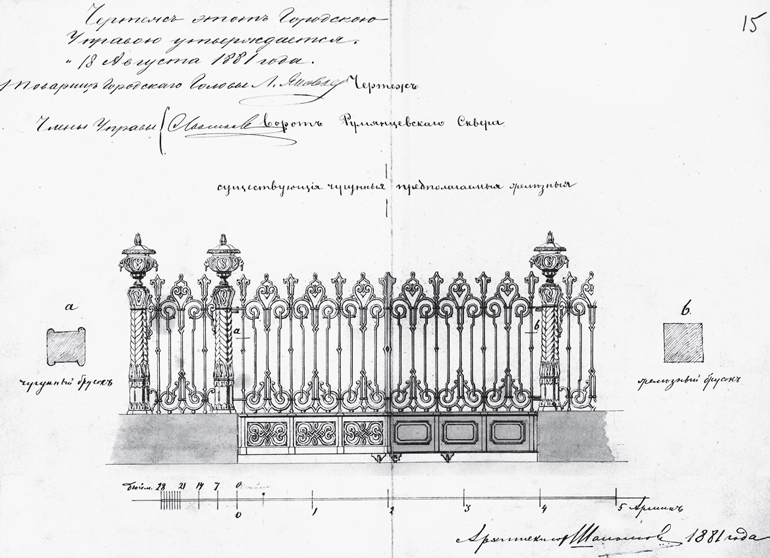 15
Чертежъ этотъ Городскою
Управою утверждается.
„ 18 Августа 1881 года.
Товарищъ Городскаго Головы Л.
Члены Управы
Чертежъ
воротъ Румянцевскаго Сквера
существующія чугунныя предполагаемыя желѣзныя
а
чугунный брусокъ
а
в
в.
желѣзный брусокъ
28 21 14 7 0
0 1 2 3 4 5 Аршинъ
Архитекторъ 1881 года